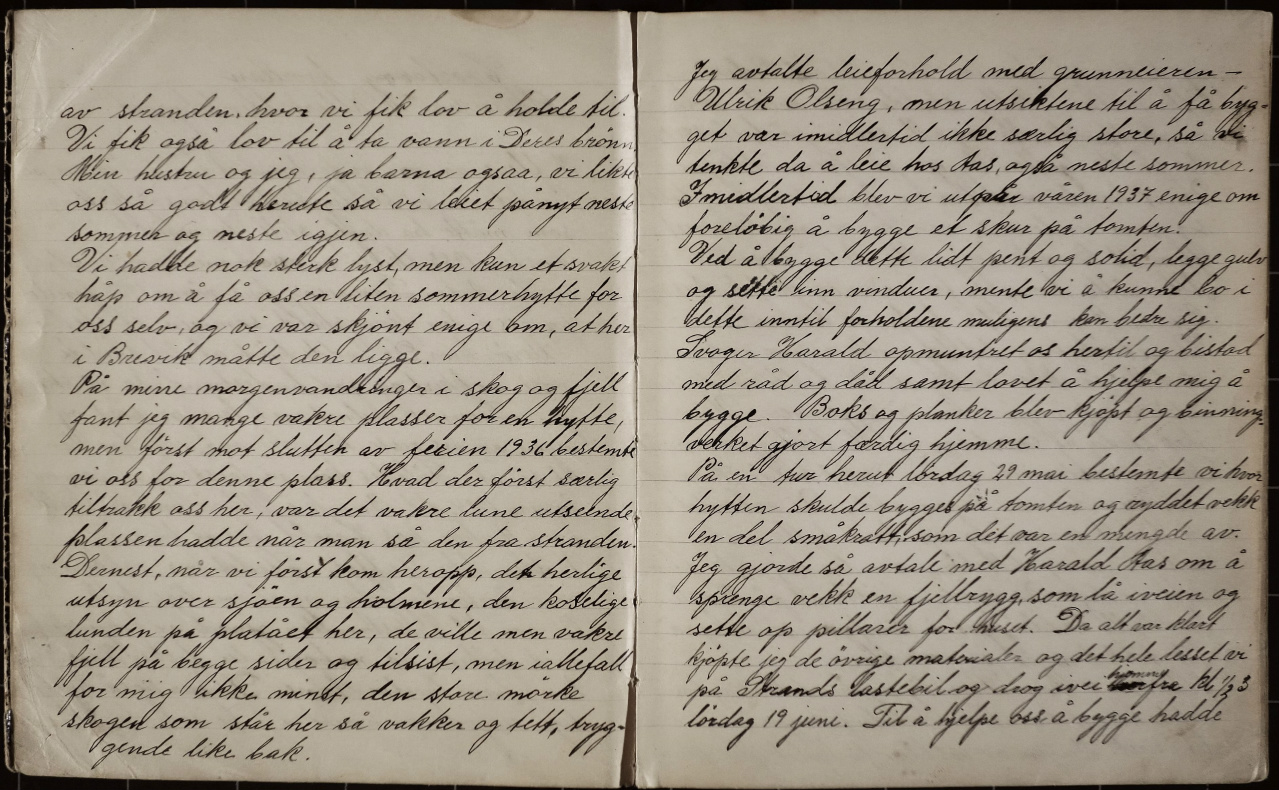 av stranden, hvor vi fik lov å holde til.
Vi fik også lov til å ta vann i Deres brönn
Min hustru og jeg, ja barna ogsaa, vi likte
oss så godt herute så vi leiet pånyt neste
sommer og neste igjen.
Vi hadde nok sterk lyst, men kun et svakt
håp om å få oss en liten sommerhytte for
oss selv, og vi var skjönt enige om, at her
i Brevik måtte den ligge.
På mine morgenvandringer i skog og fjell
fant jeg mange vakre plasser for en hytte,
men först mot slutten av ferien 1936 bestemte
vi oss for denne plass. Hvad der först særlig
tiltrakk oss her, var det vakre lune utseende
plassen hadde når man så den fra stranden.
Dernest, når vi först kom heropp, det herlige
utsyn over sjöen og holmene, den koselige
lunden på platået her, de ville men vakre
fjell på begge sider og tilsist, men iallefall
for mig ikke minst, den store mörke
skogen som står her så vakker og tett, tryg-
gende like bak.
Jeg avtalte leieforhold med grunneieren –
Ulrik Olseng, men utsiktene til å få byg-
get var imidlertid ikke særlig store, så vi
tenkte da å leie hos Aas, også neste sommer.
Imidlertid blev vi utpå våren 1937 enige om
forelöbig å bygge et skur på tomten.
Ved å bygge dette lidt pent og solid, legge gulv
og sette inn vinduer, mente vi å kunne bo i
dette inntil forholdene muligens kan bedre sig.
Svoger Harald opmuntret os hertil og bistod
med råd og dåd samt lovet å hjelpe mig å
bygge. Boks og planker blev kjöpt og binning-
verket gjort færdig hjemme.
På en tur herut lördag 29 mai bestemte vi hvor
hytten skulde bygges på tomten og ryddet vekk
en del småkratt, som det var en mengde av.
Jeg gjorde så avtale med Harald Aas om å
sprenge vekk en fjellrygg, som lå iveien og
sette op pillarer for huset. Da alt var klart
kjöpte jeg de övrige materialer og det hele lesset vi
på Strands lastebil og drog ivei hjemmefra kl ½3
lördag 19 juni. Til å hjelpe oss å bygge hadde